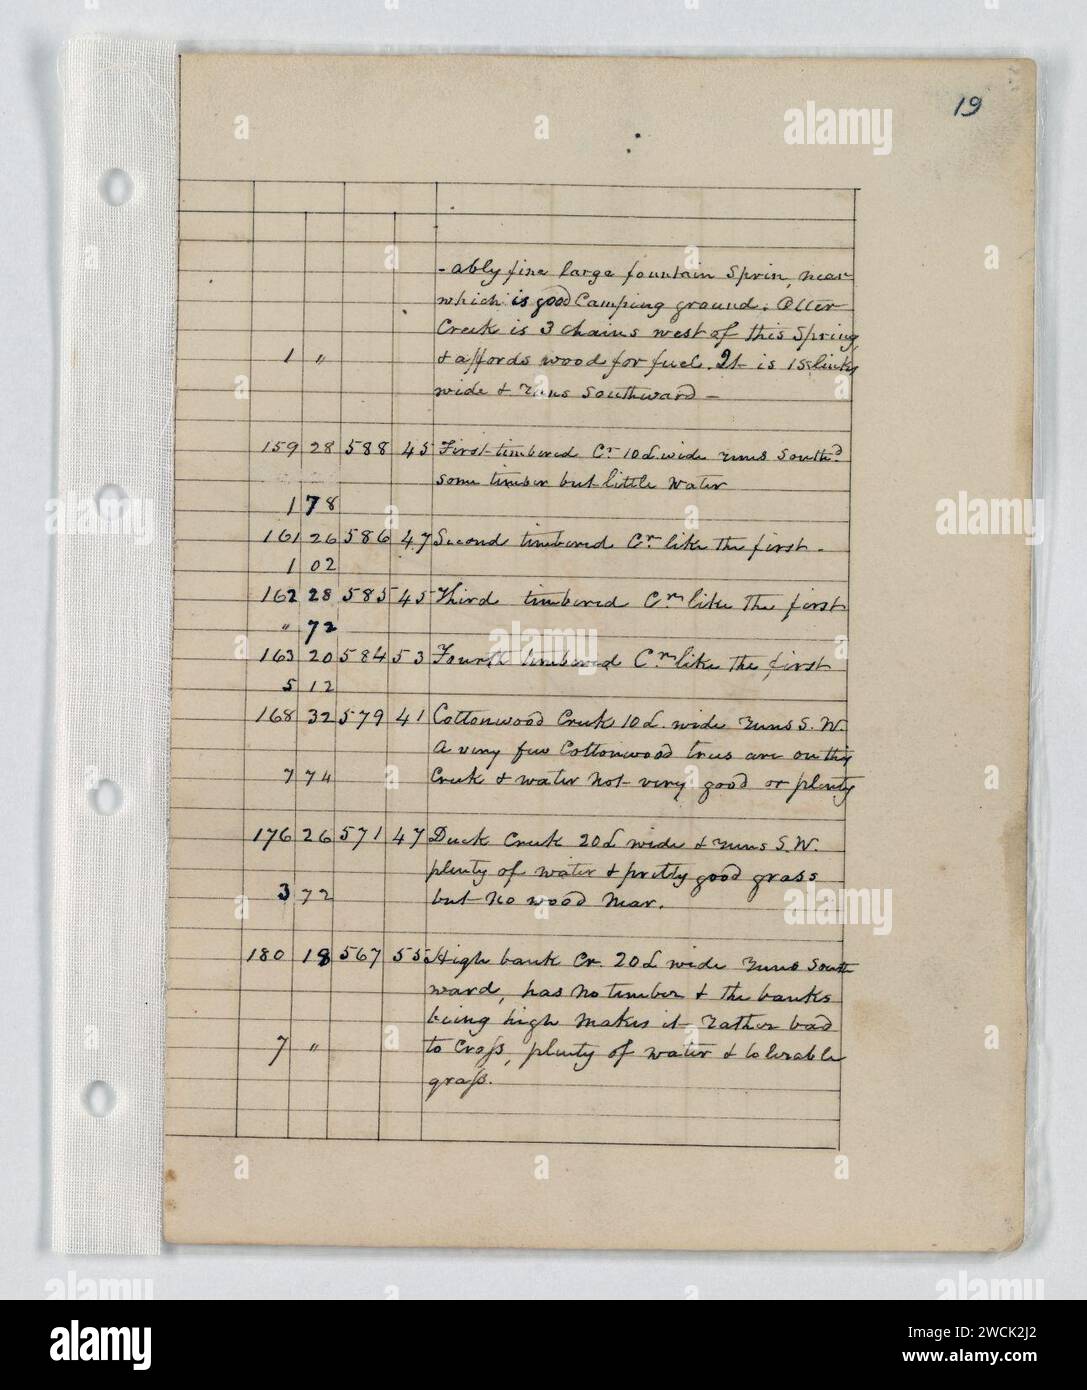 19
-ably fine large fountain Sprin, near
which is good Camping ground. Otter
Creek is 3 chains west of this Spring,
1 " & affords wood for fuel. It is 15 links
wide & runs Southward –
159 28 588 45 First timbered Cr 10 L. wide runs Southd
some timber but little water
1 78
161 26 586 47 Second timbered Cr. like the first.
1 02
162 28 585 45 Third timbered Cr. like the first
" 72
163 20 584 53 Fourth timbered Cr. like the first
5 12
168 32 579 41 Cottonwood Creek 10 L. wide runs S. W.
A very few Cottonwood trees are on this
7 74 Creek & water not very good or plenty
176 26 571 47 Duck Creek 20 L wide & runs S. W.
plenty of water & pretty good grass
3 72 but no wood near.
180 18 567 55 High bank Cr. 20 L wide runs South
ward, has no timber & the banks
being high makes it rather bad
7 " to Croſs, plenty of water & tolerable
graſs.
alamy
alamy
alamy
alamy
alamy
alamy
a
a
a
a
a
a
a
a
a
a
a
a
a
a
alamy
Image ID: 2WCK2J2
www.alamy.com